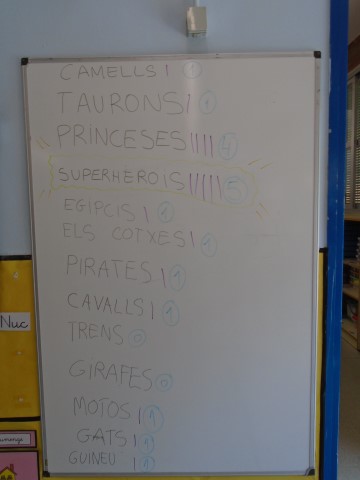 CAMELLS | 1
TAURONS | 1
PRINCESES |||| 4
SUPERHEROIS ||||| 5
EGIPCIS | 1
ELS COTXES | 1
PIRATES | 1
CAVALLS | 1
TRENS 0
GIRAFES 0
MOTOS | 1
GATS | 1
GUINEU | 1
Nuc